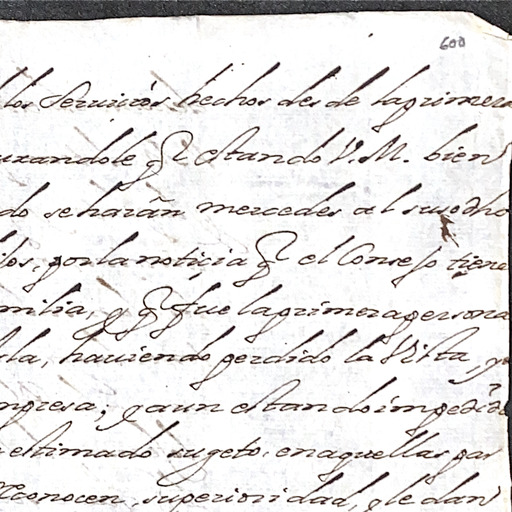 600
los seruiçios hechos desde la primera
urandole q̃ estando V. M. bien
do se harán mercedes al susodho
los, por la notiçia q̃ el Consejo tiene
milia, y q̃ fue la primera persona
la, hauiendo perdido la Vista, y
mpresa; y aun estando impedido
estimado sugeto, en aquellas par
Reconocen superioridad, y le dan